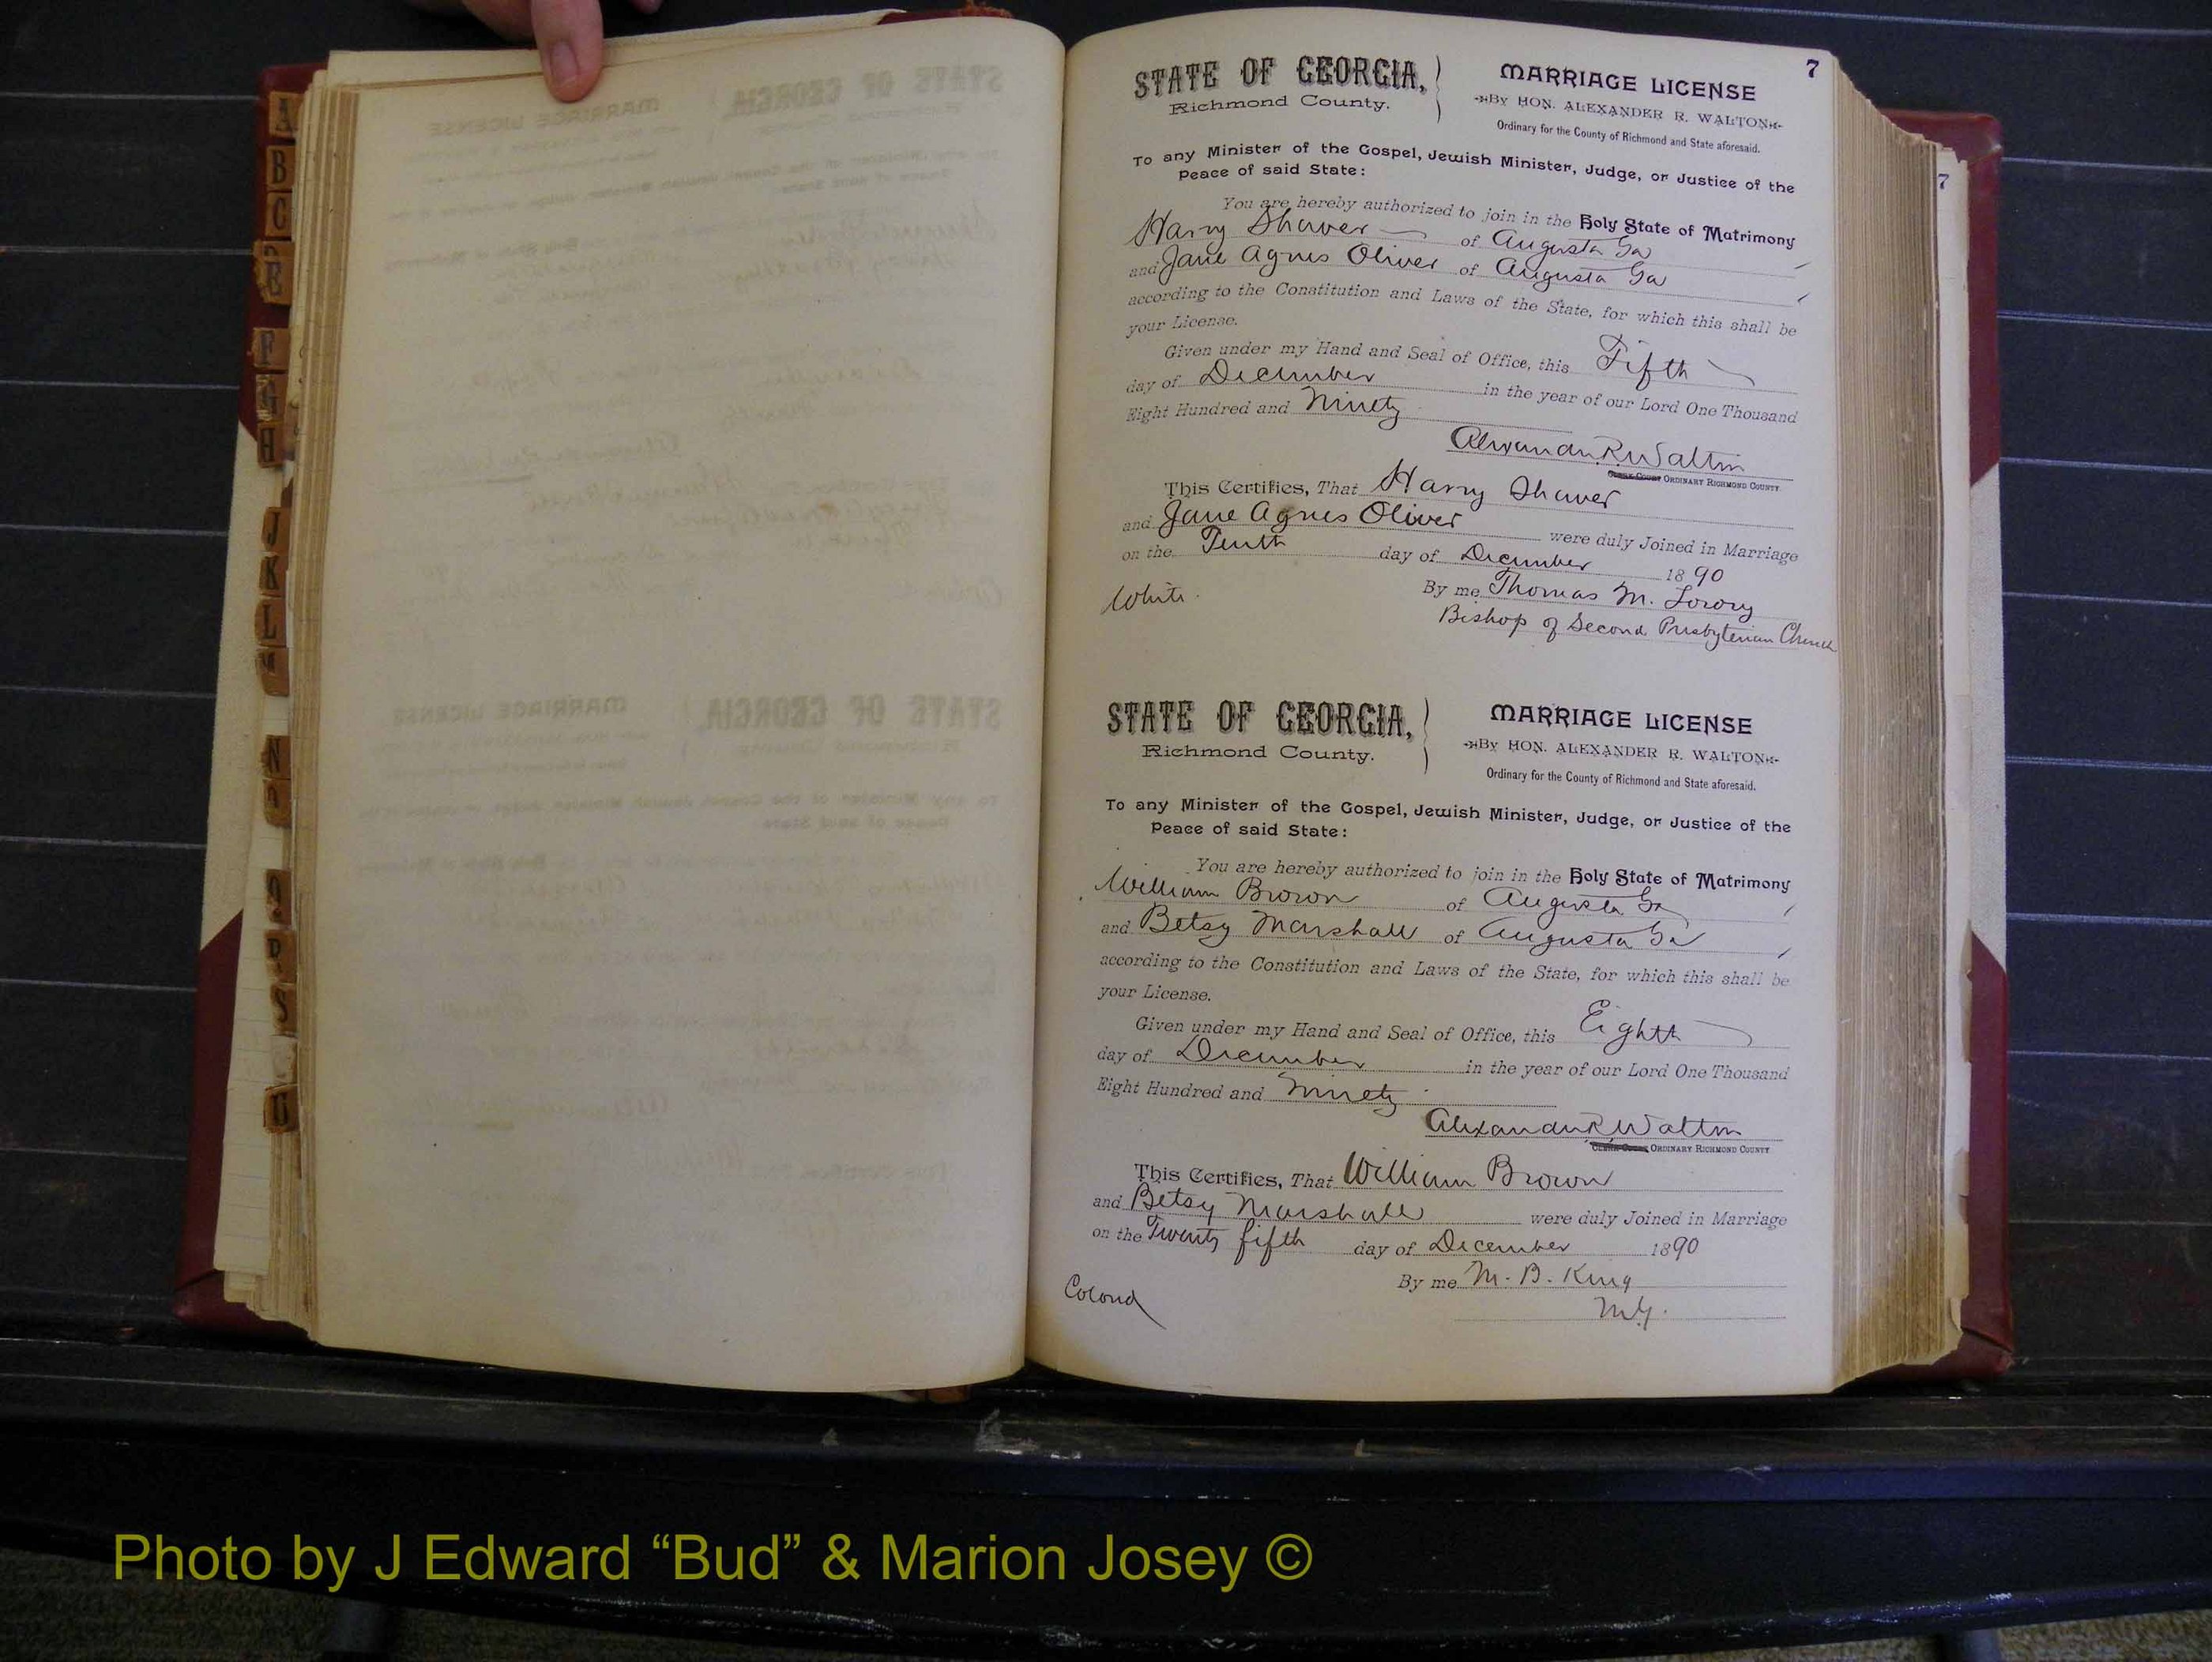 7
STATE OF GEORGIA,
Richmond County.
MARRIAGE LICENSE
By HON. ALEXANDER R. WALTON
Ordinary for the County of Richmond and State aforesaid.
To any Minister of the Gospel, Jewish Minister, Judge, or Justice of the
Peace of said State:
You are hereby authorized to join in the Holy State of Matrimony
Harry Shaver of Augusta Ga
and Jane Agnes Oliver of Augusta Ga
according to the Constitution and Laws of the State, for which this shall be
your License.
Given under my Hand and Seal of Office, this Fifth
day of December in the year of our Lord One Thousand
Eight Hundred and Ninety
Alexander R Walton
CLERK COURT ORDINARY RICHMOND COUNTY.
This Certifies, That Harry Shaver
and Jane Agnes Oliver were duly Joined in Marriage
on the Tenth day of December 1890
White. By me Thomas M. Lowry
Bishop of Second Presbyterian Church
STATE OF GEORGIA,
Richmond County.
MARRIAGE LICENSE
By HON. ALEXANDER R. WALTON
Ordinary for the County of Richmond and State aforesaid.
To any Minister of the Gospel, Jewish Minister, Judge, or Justice of the
Peace of said State:
You are hereby authorized to join in the Holy State of Matrimony
William Brown of Augusta Ga
and Betsy Marshall of Augusta Ga
according to the Constitution and Laws of the State, for which this shall be
your License.
Given under my Hand and Seal of Office, this Eighth
day of December in the year of our Lord One Thousand
Eight Hundred and Ninety
Alexander R Walton
CLERK COURT ORDINARY RICHMOND COUNTY
This Certifies, That William Brown
and Betsy Marshall were duly Joined in Marriage
on the Twenty fifth day of December 1890
By me M. B. King
Colored M.G.
7
A
B
C
E
F
G
H
J
K
L
M
N
O
Q
R
S
U
Photo by J Edward “Bud” & Marion Josey ©